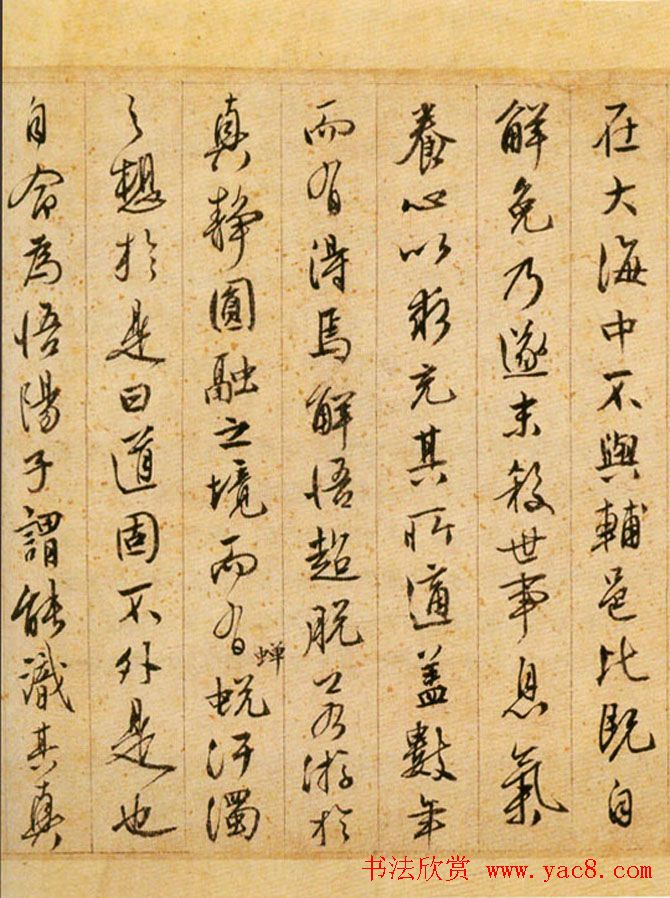 在大海中不與輔邑比既自
解免乃遂末殺世事息氣
養心以充其所適蓋數年
而有得焉解悟超脱若游於
真静圓融之境而有蟬蜕汙濁
之想於是曰道固不外是也
自命為悟陽子謂能識其真
书法欣赏 www.yac8.com